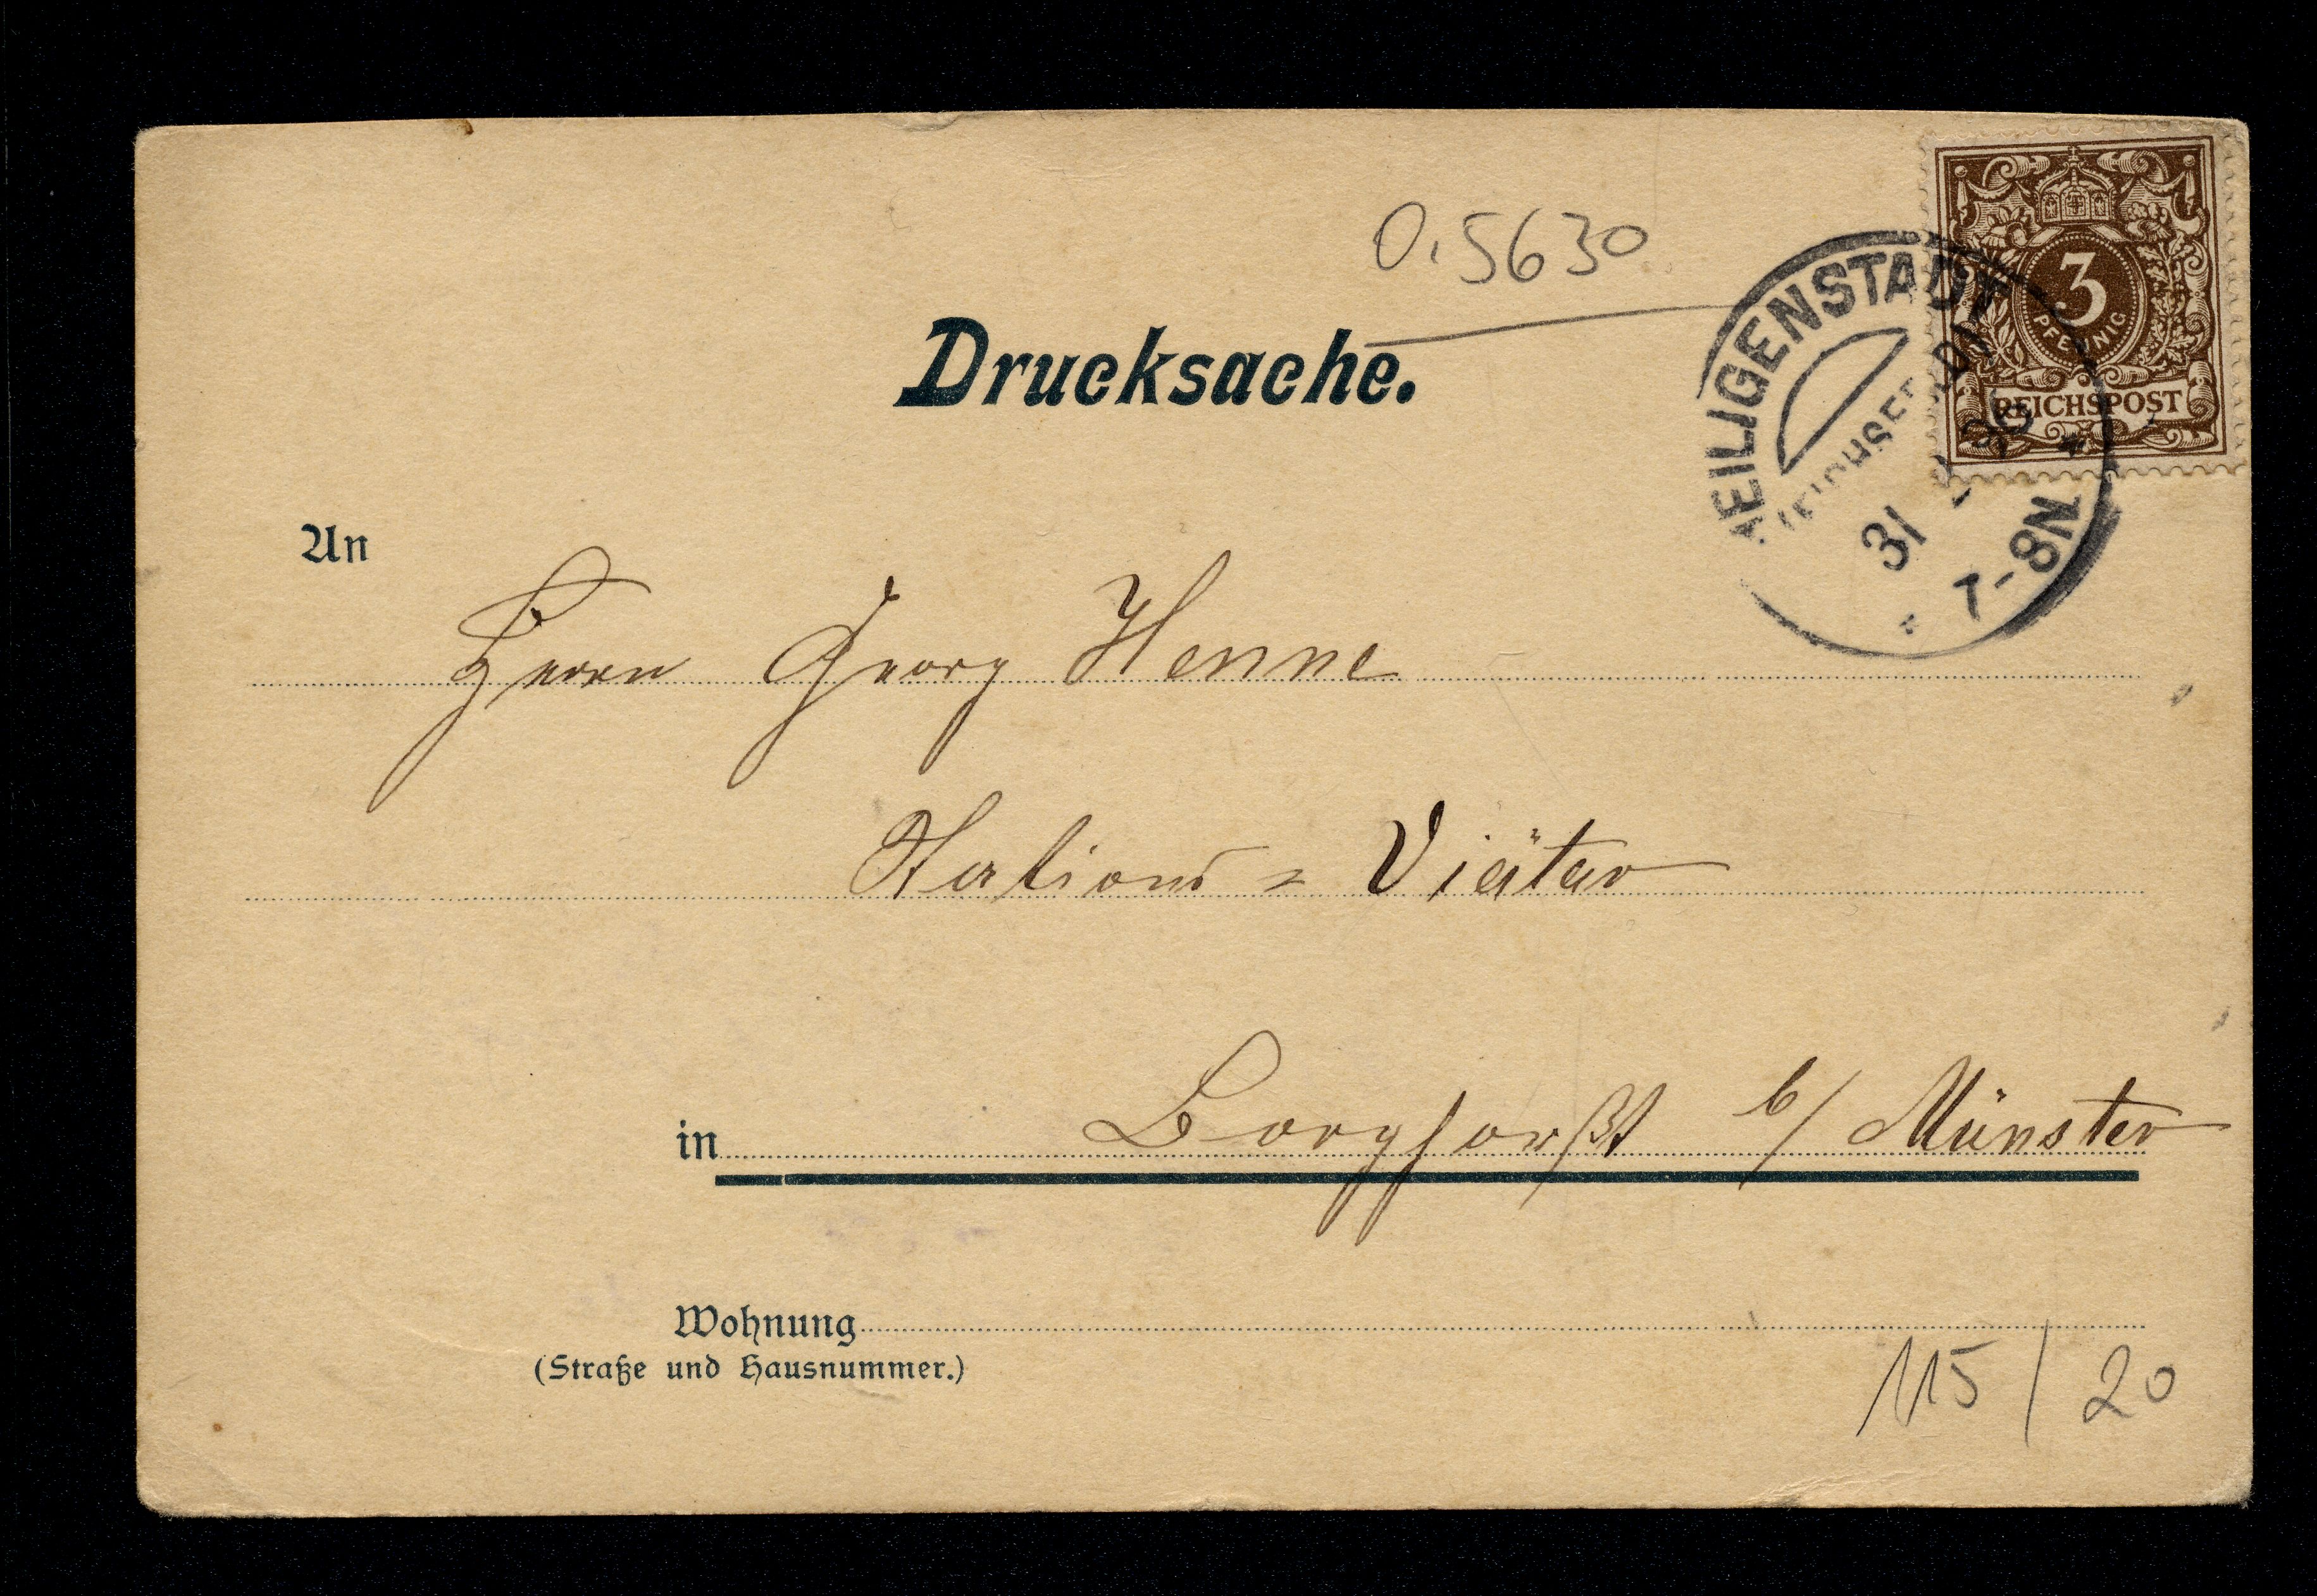 0.5630
3
PFENNIG
REICHSPOST
HEILIGENSTADT
(EICHSFELD)
31
7-8N
Drucksache.
An
Herrn Georg Henne
Stations = Diätar
in Borghorst b/ Münster
Wohnung
(Straße und Hausnummer.)
115/20